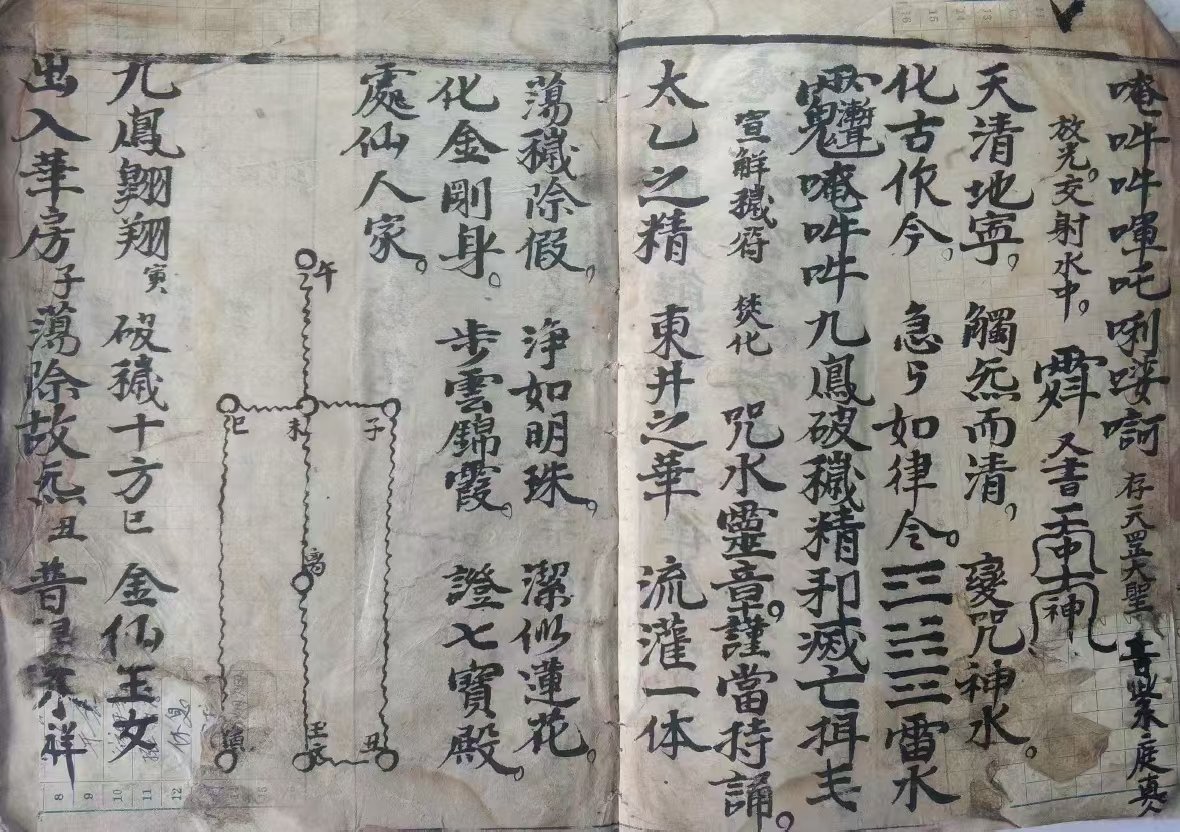 唵吽吽喗吒唎娑訶 存天罡大聖
放光。交射水中。 又書 壬中 神
天清地寧。觸炁而清。變咒神水。
化古作今。急ㄣ如律令。三三三三雷水
唵吽吽九鳳破穢精邪滅亡揖
宣解穢符 焚化 咒水靈章。謹當持誦。
太乙之精 東井之華 流灌一体
蕩穢除假。浄如明珠。潔似蓮花。
化金剛身。步雲錦霞。證七寶殿。
處仙人家。
午
巳 未 子
离
寅 丑
九鳳翱翔寅 破穢十方巳 金仙玉女
出入華房子 蕩除故炁丑 普 祥
8
9
10
11
12